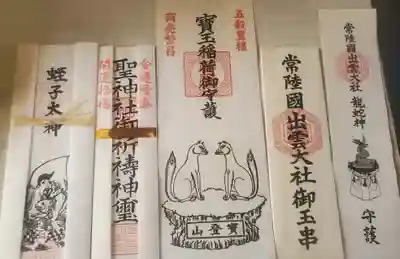 蛭子大神
金運隆昌
聖神社御祈禱神璽
開運招福
五穀豊穰
寶玉稲荷御守護
商売繁昌
寳登山
常陸國出雲大社御玉串
常陸國出雲大社
龍蛇神
守護